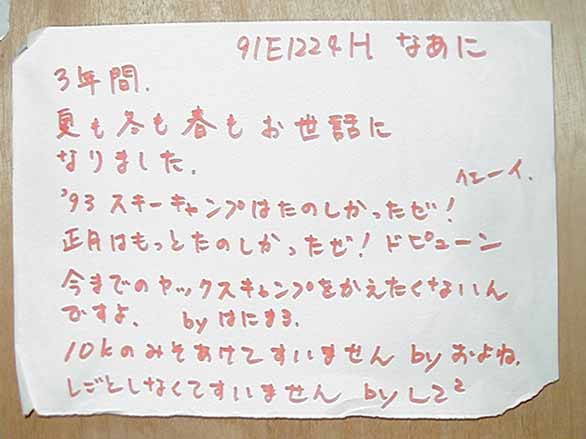 91E1224H なあに
3年間.
夏も冬も春もお世話に
なりました.
イエーイ.
'93 スキーキャンプはたのしかったぜ!
正月はもっとたのしかったぜ! ドピューン
今までのヤックスキャンプをかえたくないん
ですよ. by はにまる.
10kのみそあけてすいません by およね.
しごとしなくてすいません by L2²